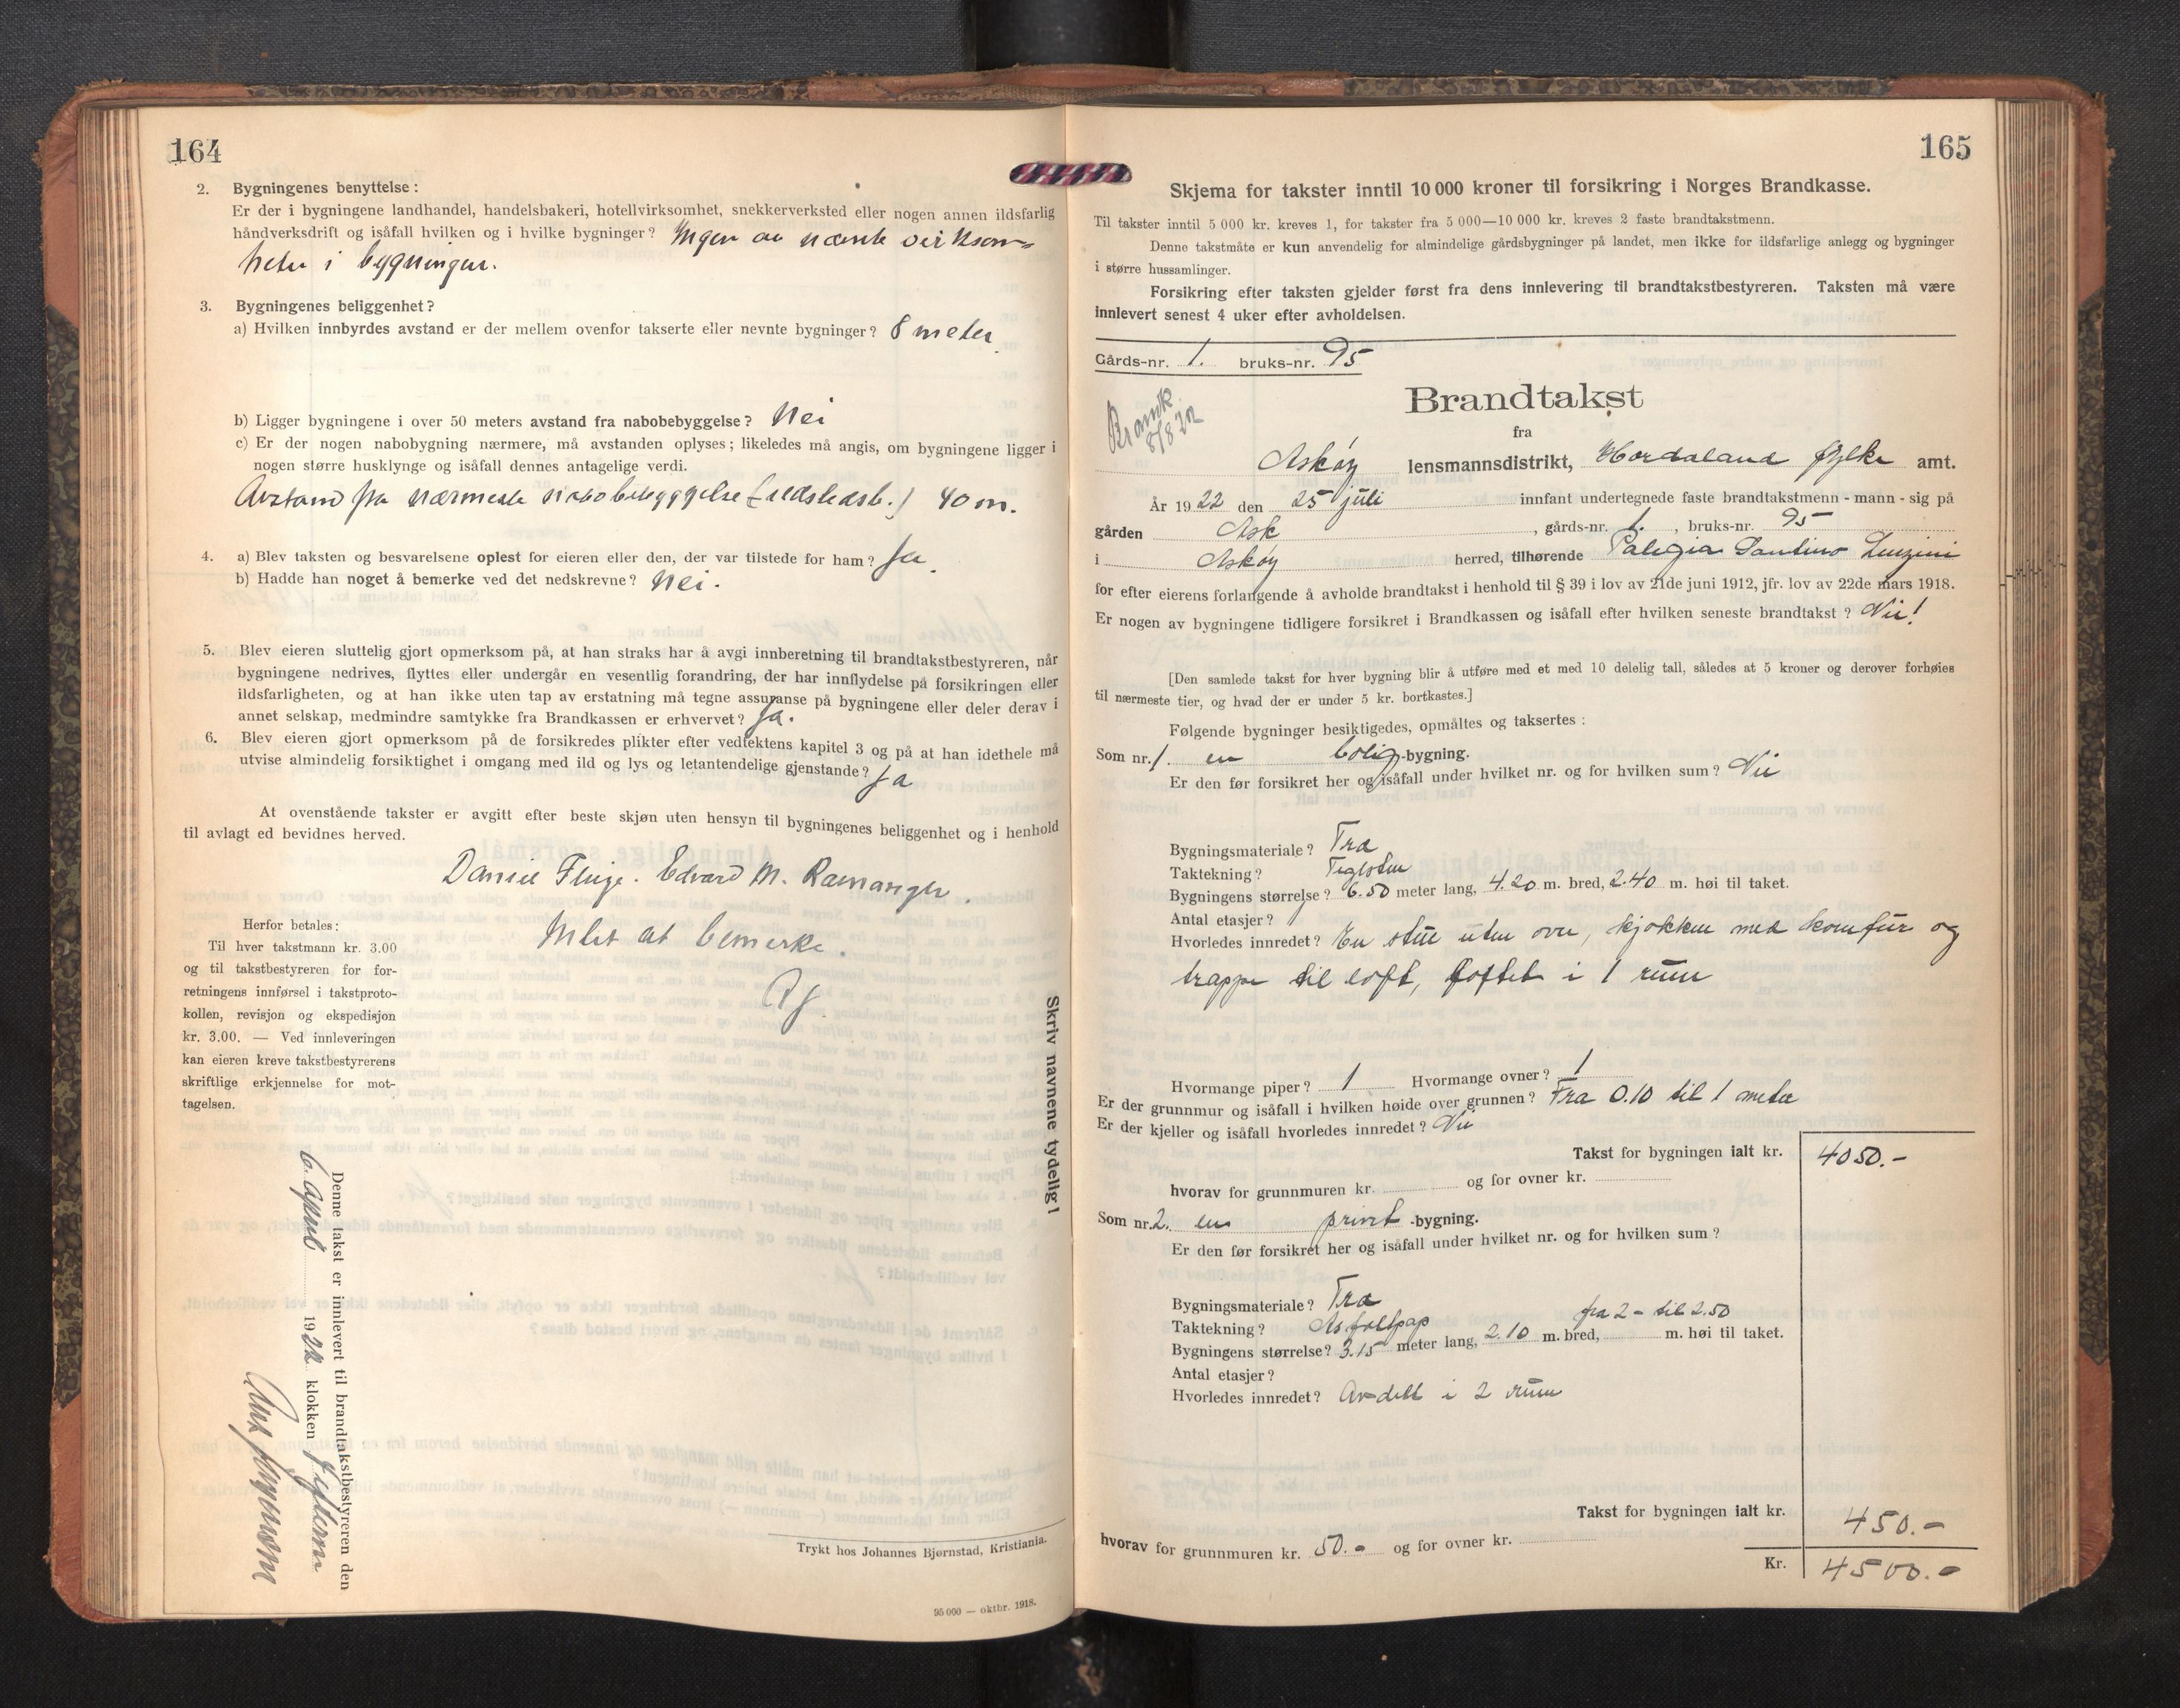 164
2. Bygningenes benyttelse:
Er der i bygningene landhandel, handelsbakeri, hotellvirksomhet, snekkerverksted eller nogen annen ildsfarlig
håndverksdrift og isåfall hvilken og i hvilke bygninger? Ingen av nævnte virksom-
heter i bygningen.
3. Bygningenes beliggenhet?
a) Hvilken innbyrdes avstand er der mellem ovenfor takserte eller nevnte bygninger? 8 meter.
b) Ligger bygningene i over 50 meters avstand fra nabobebyggelse? Nei
c) Er der nogen nabobygning nærmere, må avstanden oplyses; likeledes må angis, om bygningene ligger i
nogen større husklynge og isåfall dennes antagelige verdi.
Avstand fra nærmeste nabobebyggelse 40 m.
4. a) Blev taksten og besvarelsene oplest for eieren eller den, der var tilstede for ham? Ja.
b) Hadde han noget å bemerke ved det nedskrevne? Nei.
5. Blev eieren sluttelig gjort opmerksom på, at han straks har å avgi innberetning til brandtakstbestyreren, når
bygningene nedrives, flyttes eller undergår en vesentlig forandring, der har innflydelse på forsikringen eller
ildsfarligheten, og at han ikke uten tap av erstatning må tegne assuranse på bygningene eller deler derav i
annet selskap, medmindre samtykke fra Brandkassen er erhvervet? Ja.
6. Blev eieren gjort opmerksom på de forsikredes plikter efter vedtektens kapitel 3 og på at han idethele må
utvise almindelig forsiktighet i omgang med ild og lys og letantendelige gjenstande? Ja
At ovenstående takster er avgitt efter beste skjøn uten hensyn til bygningenes beliggenhet og i henhold
til avlagt ed bevidnes herved.
Daniel Fluge. Edvard M. Ramanger.
Intet at bemerke.
Herfor betales:
Til hver takstmann kr. 3.00
og til takstbestyreren for for-
retningens innførsel i takstproto-
kollen, revisjon og ekspedisjon
kr. 3.00. — Ved innleveringen
kan eieren kreve takstbestyrerens
skriftlige erkjennelse for mot-
tagelsen.
Skriv navnene tydelig!
Denne takst er innlevert til brandtakstbestyreren den
6. april 1922 klokken
Trykt hos Johannes Bjørnstad, Kristiania.
95 000 — oktbr. 1918.
165
Skjema for takster inntil 10 000 kroner til forsikring i Norges Brandkasse.
Til takster inntil 5 000 kr. kreves 1, for takster fra 5 000—10 000 kr. kreves 2 faste brandtakstmenn.
Denne takstmåte er kun anvendelig for almindelige gårdsbygninger på landet, men ikke for ildsfarlige anlegg og bygninger
i større hussamlinger.
Forsikring efter taksten gjelder først fra dens innlevering til brandtakstbestyreren. Taksten må være
innlevert senest 4 uker efter avholdelsen.
Gårds-nr. 1. bruks-nr. 95
Brandtakst
8/8 22
fra
Askøy lensmannsdistrikt, Hordaland fylke amt.
År 1922 den 25 juli innfant undertegnede faste brandtakstmenn - mann - sig på
gården Ask, gårds-nr. 1., bruks-nr. 95
i Askøy herred, tilhørende Santino
for efter eierens forlangende å avholde brandtakst i henhold til § 39 i lov av 21de juni 1912, jfr. lov av 22de mars 1918.
Er nogen av bygningene tidligere forsikret i Brandkassen og isåfall efter hvilken seneste brandtakst? Nei!
[Den samlede takst for hver bygning blir å utføre med et med 10 delelig tall, således at 5 kroner og derover forhøies
til nærmeste tier, og hvad der er under 5 kr. bortkastes.]
Følgende bygninger besiktigedes, opmåltes og taksertes:
Som nr. 1. en bolig-bygning.
Er den før forsikret her og isåfall under hvilket nr. og for hvilken sum? Nei
Bygningsmateriale? Træ
Taktekning? Teglsten
Bygningens størrelse? 6.50 meter lang, 4.20 m. bred, 2.40 m. høi til taket.
Antal etasjer? 1
Hvorledes innredet? En stue uten ovn, kjøkken med komfur og
trappe til loft, loftet i 1 rum
Hvormange piper? 1 Hvormange ovner? 1
Er der grunnmur og isåfall i hvilken høide over grunnen? Fra 0.10 til 1 meter
Er der kjeller og isåfall hvorledes innredet? Nei
Takst for bygningen ialt kr. 4050.-
hvorav for grunnmuren kr. og for ovner kr.
Som nr. 2. en privet-bygning.
Er den før forsikret her og isåfall under hvilket nr. og for hvilken sum?
Bygningsmateriale? Træ
Taktekning? Asfaltpap fra 2 - til 2.50
Bygningens størrelse? 3.15 meter lang, 2.10 m. bred, m. høi til taket.
Antal etasjer?
Hvorledes innredet? Avdelt i 2 rum
Takst for bygningen ialt kr. 450.-
hvorav for grunnmuren kr. 50.- og for ovner kr.
Kr. 4500.-